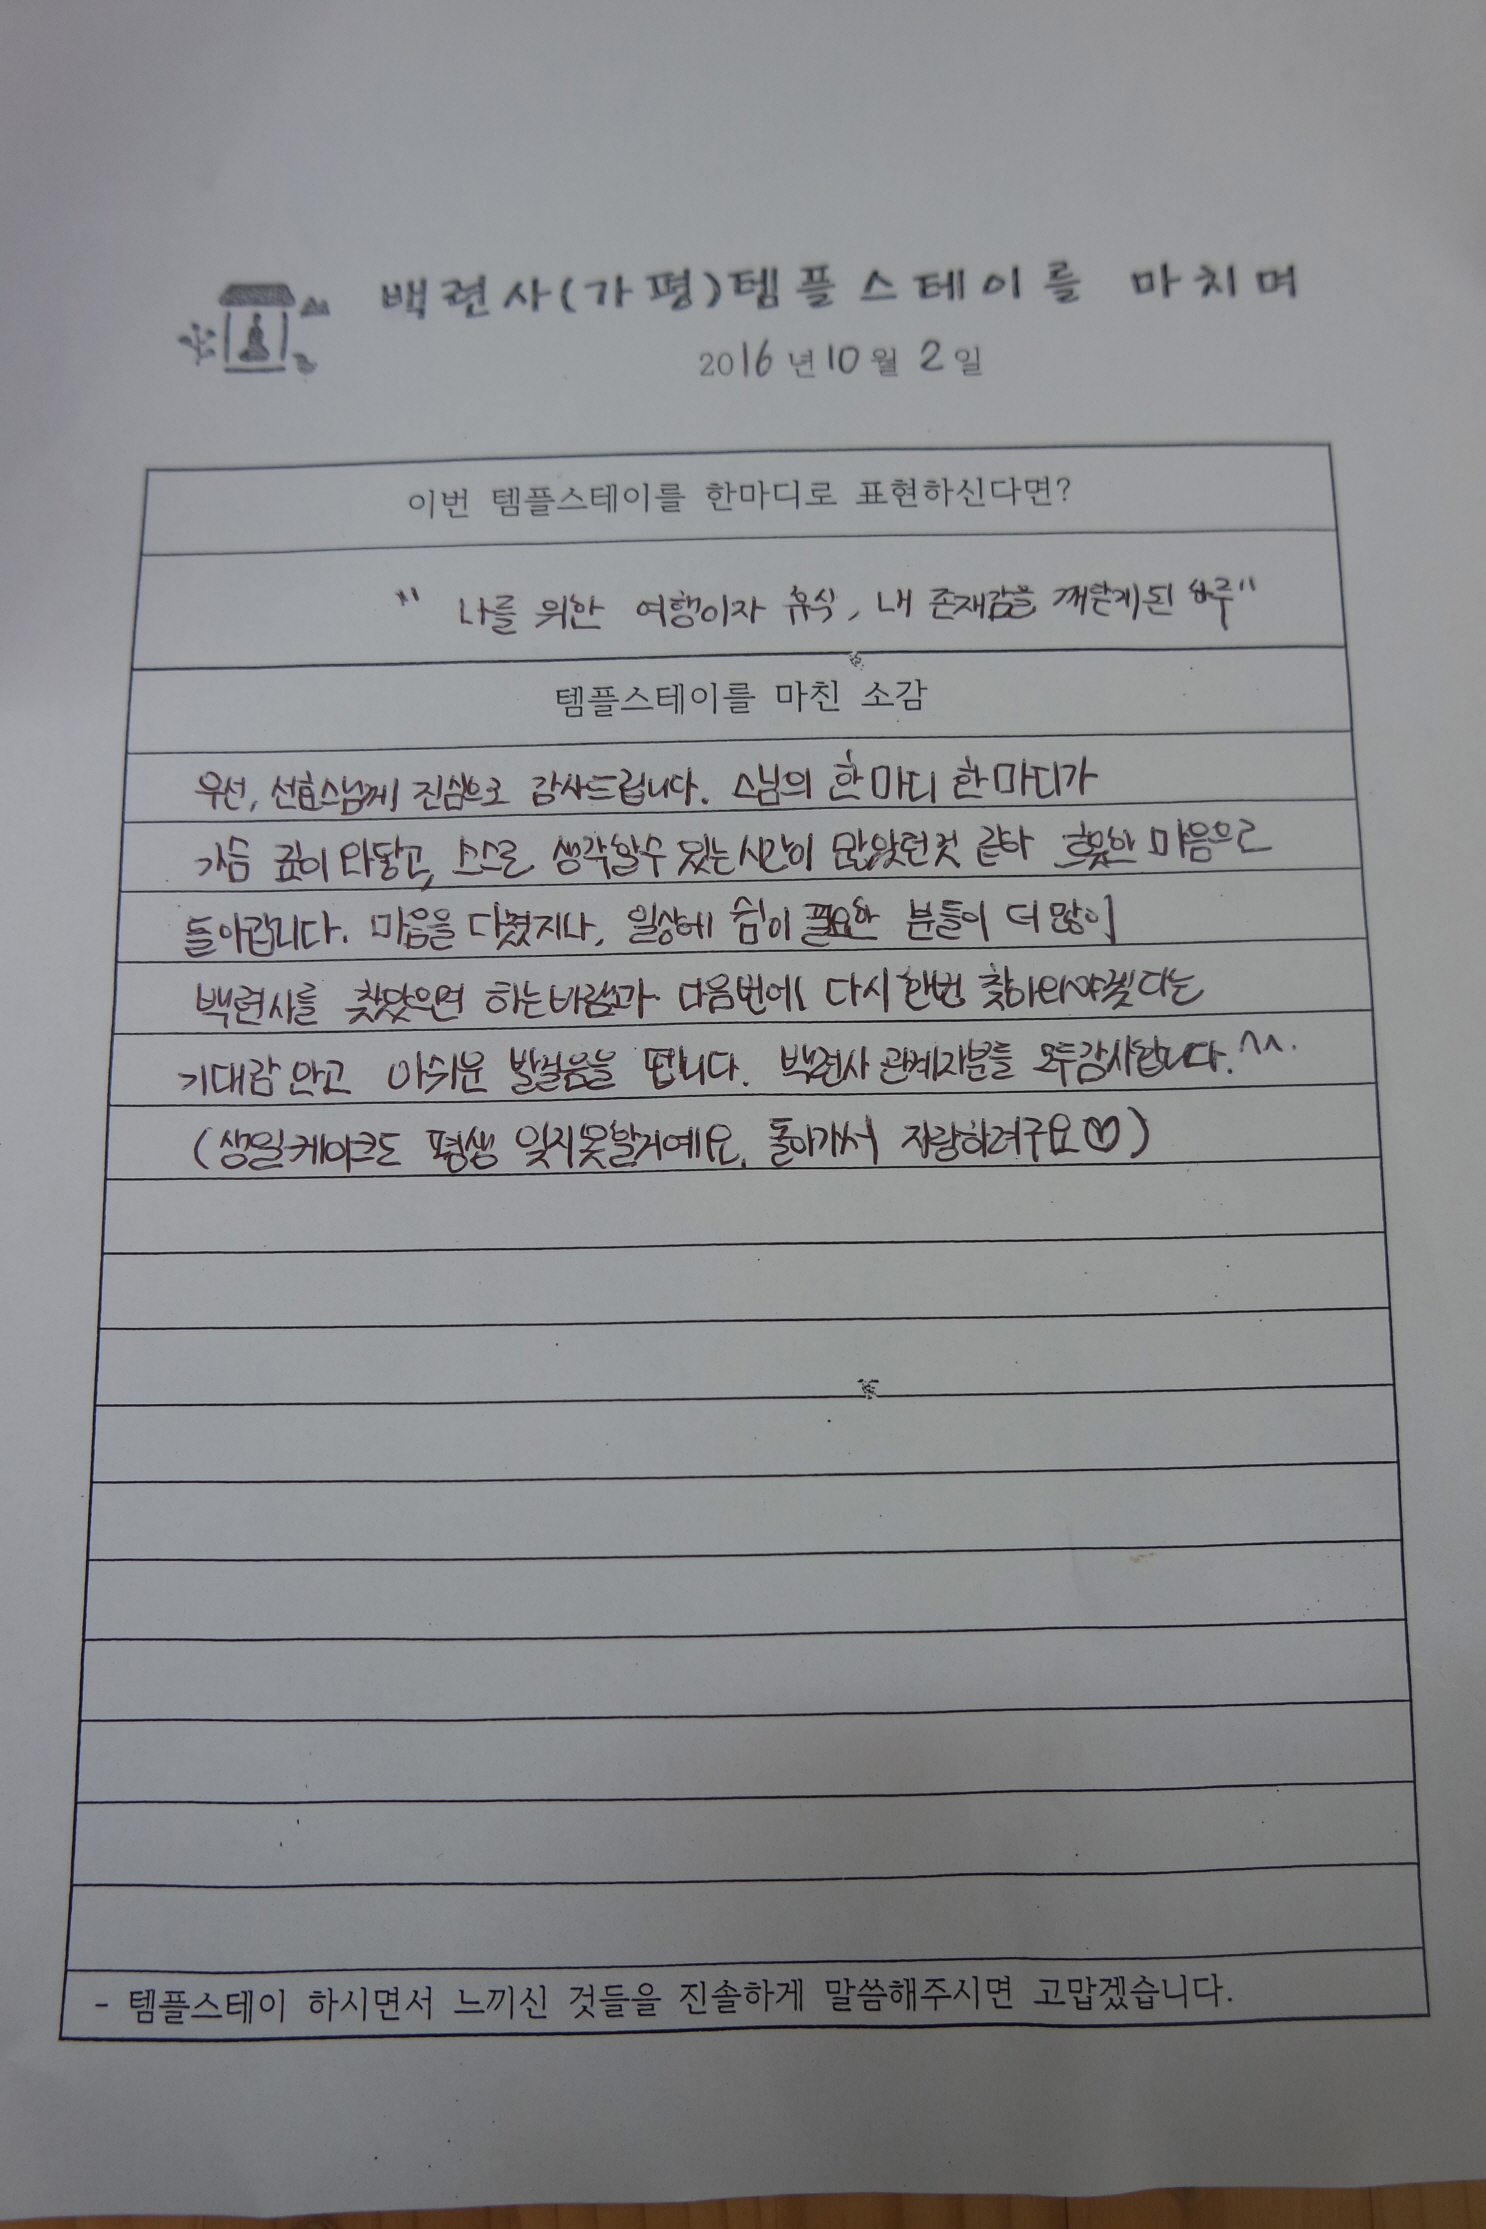 백련사(가평)템플스테이를 마치며
2016년 10월 2일
이번 템플스테이를 한마디로 표현하신다면?
" 나를 위한 여행이자 휴식, 내 존재감을 깨닫게된 하루"
템플스테이를 마친 소감
우선, 선효스님께 진심으로 감사드립니다. 스님의 한마디 한마디가
가슴 깊이 와닿고, 스스로 생각할수 있는시간이 많았던것 같아 흐뭇한 마음으로
돌아갑니다. 마음을 다쳤거나, 일상에 쉼이 필요한 분들이 더 많이
백련사를 찾았으면 하는바램과 다음번에 다시 한번 찾아와야겠다는
기대감 안고 아쉬운 발걸음을 뗍니다. 백련사 관계자분들 모두감사합니다.^^.
(생일케이크도 평생 잊지못할거예요. 돌아가서 자랑하려구요♡)
- 템플스테이 하시면서 느끼신 것들을 진솔하게 말씀해주시면 고맙겠습니다.